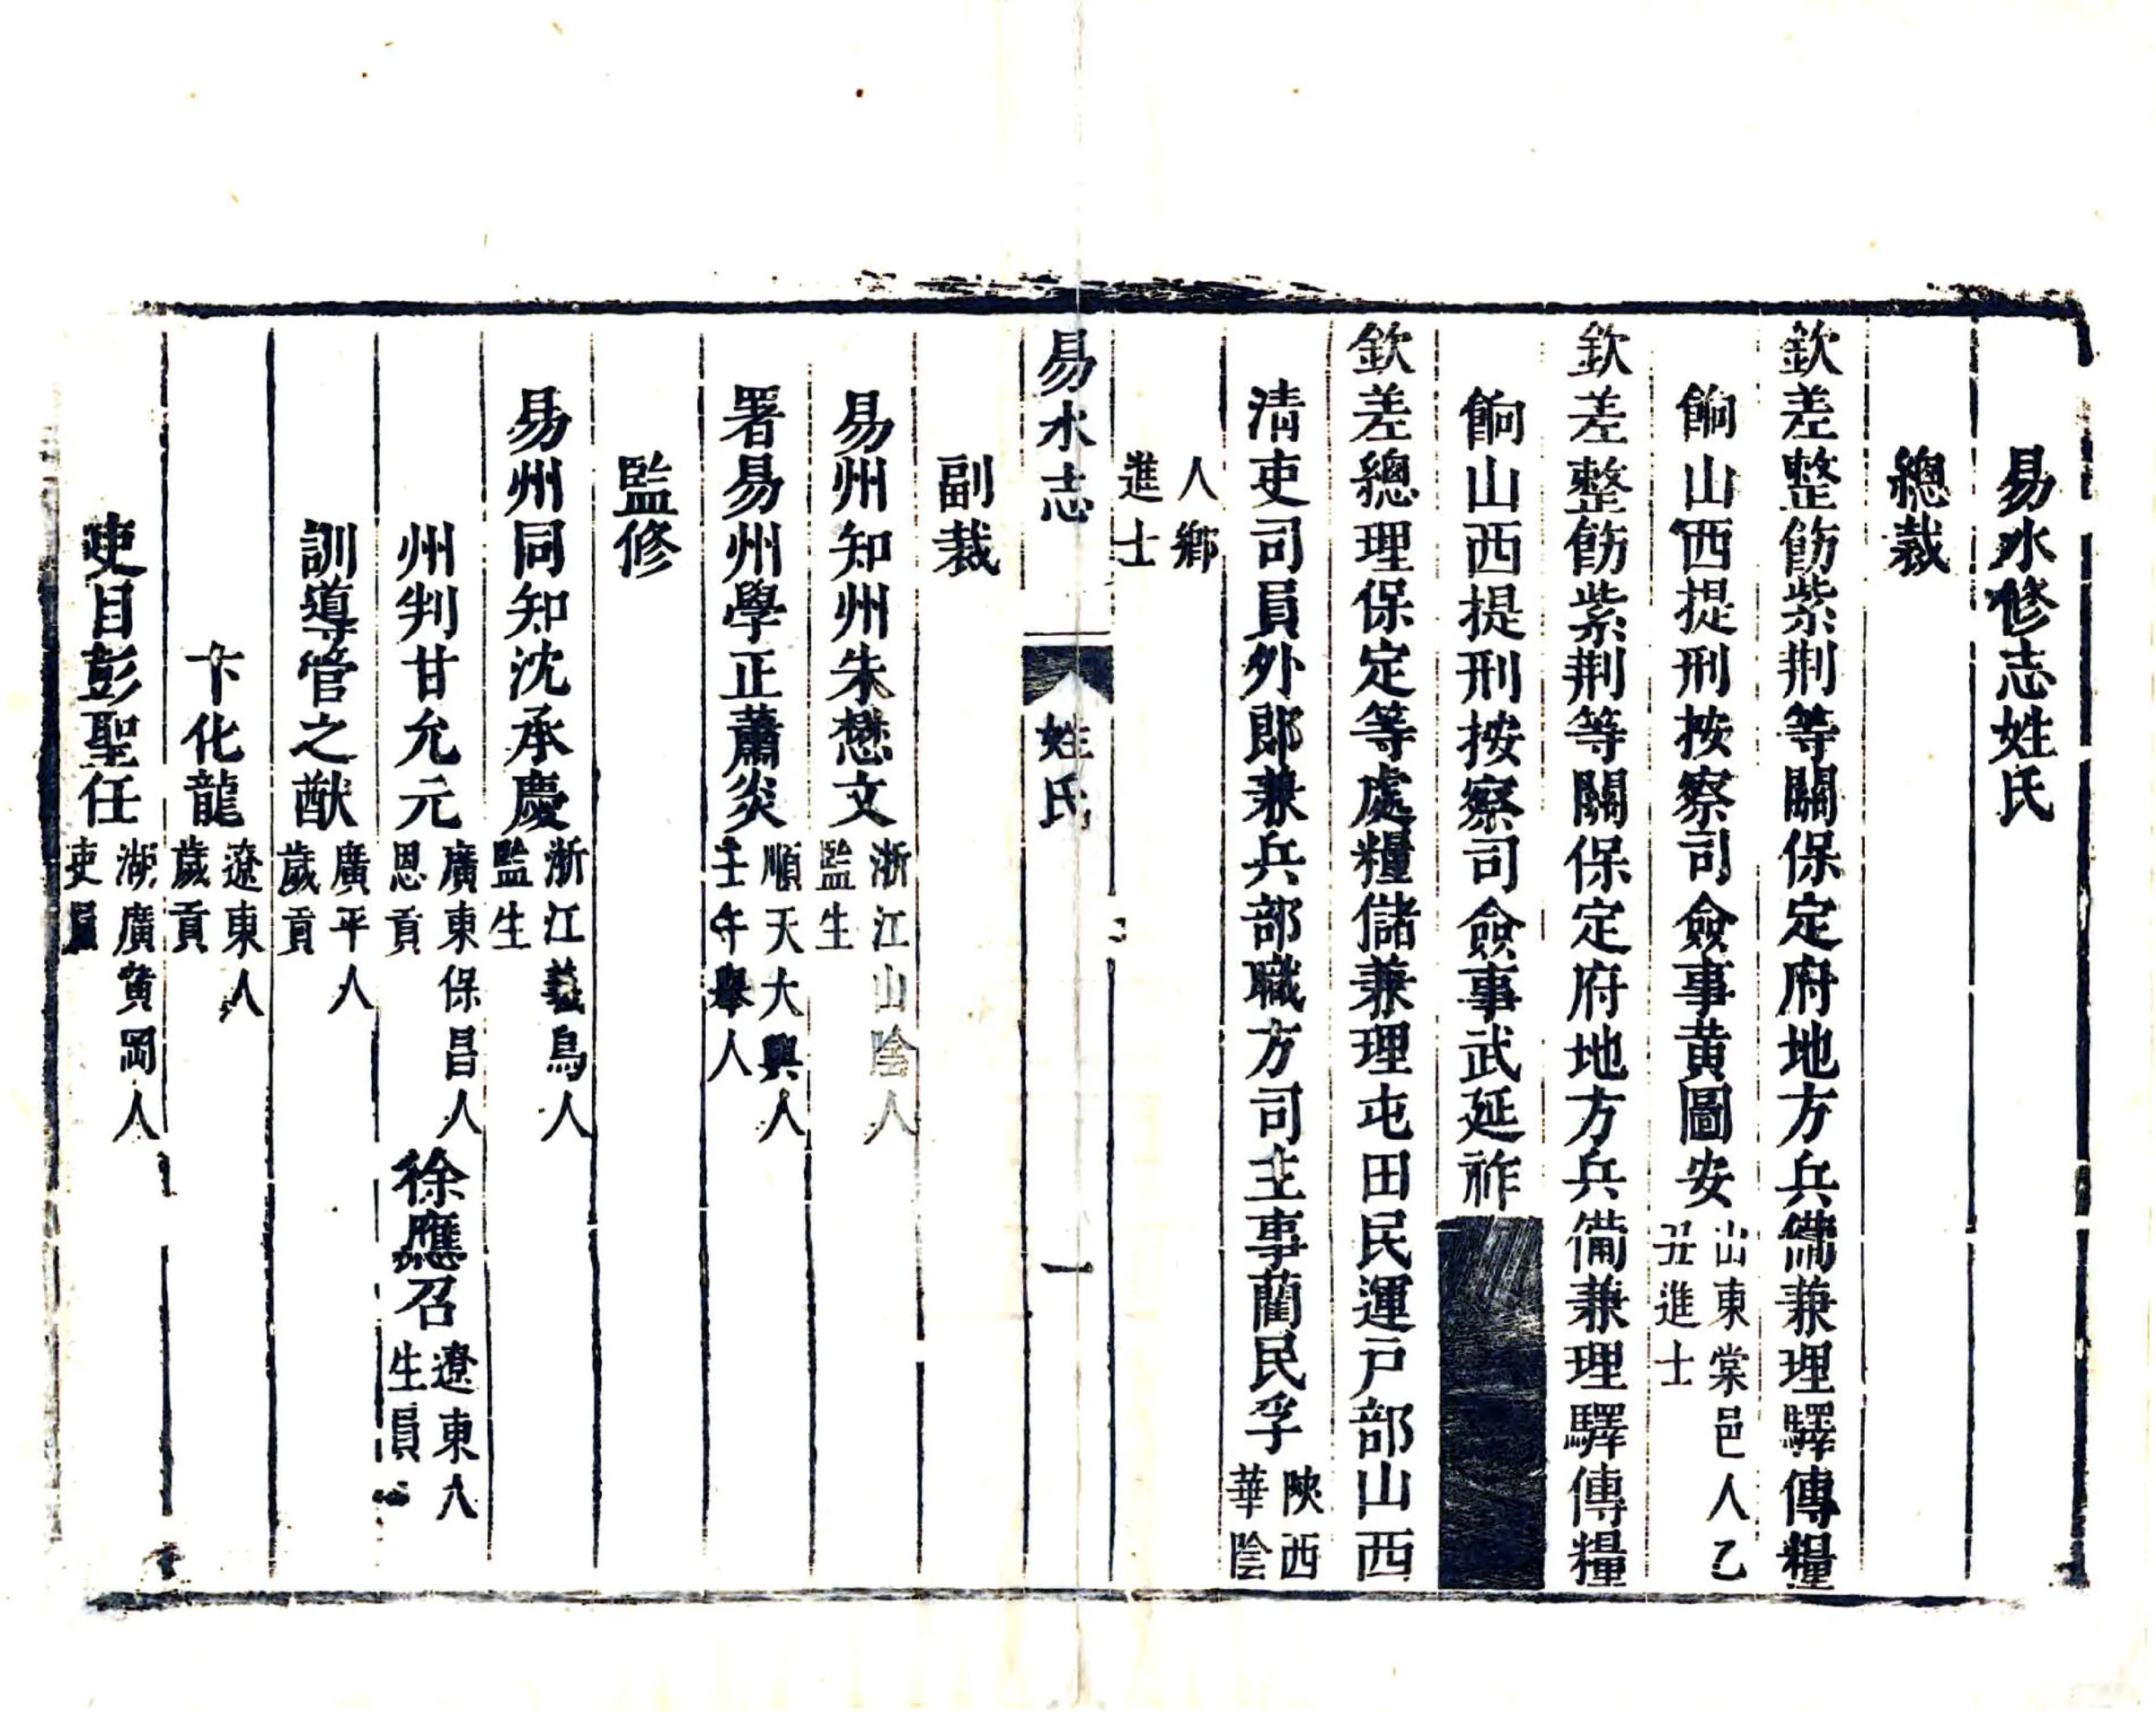 易水修志姓氏
總裁
欽差整飭紫荆等關保定府地方兵備兼理驛傳糧
餉山西提刑按察司僉事黃圖安山東棠邑人乙
丑進士
欽差整飭紫荆等關保定府地方兵備兼理驛傳糧
餉山西提刑按察司僉事武延祚
欽差總理保定等處糧儲兼理屯田民運戸部山西
清吏司員外郎兼兵部職方司主事藺民孚陝西
華陰
人鄉
進士
易水志
姓氏
一
副裁
易州知州朱懋文浙江山陰人
監生
署易州學正蕭炎順天大興人
壬午舉人
監修
易州同知沈承慶浙江義烏人
監生
州判甘允元廣東保昌人
恩貢
徐應召遼東人
生員
訓導管之猷廣平人
歲貢
卞化龍遼東人
歲貢
吏目彭聖任湖廣黃岡人
吏員